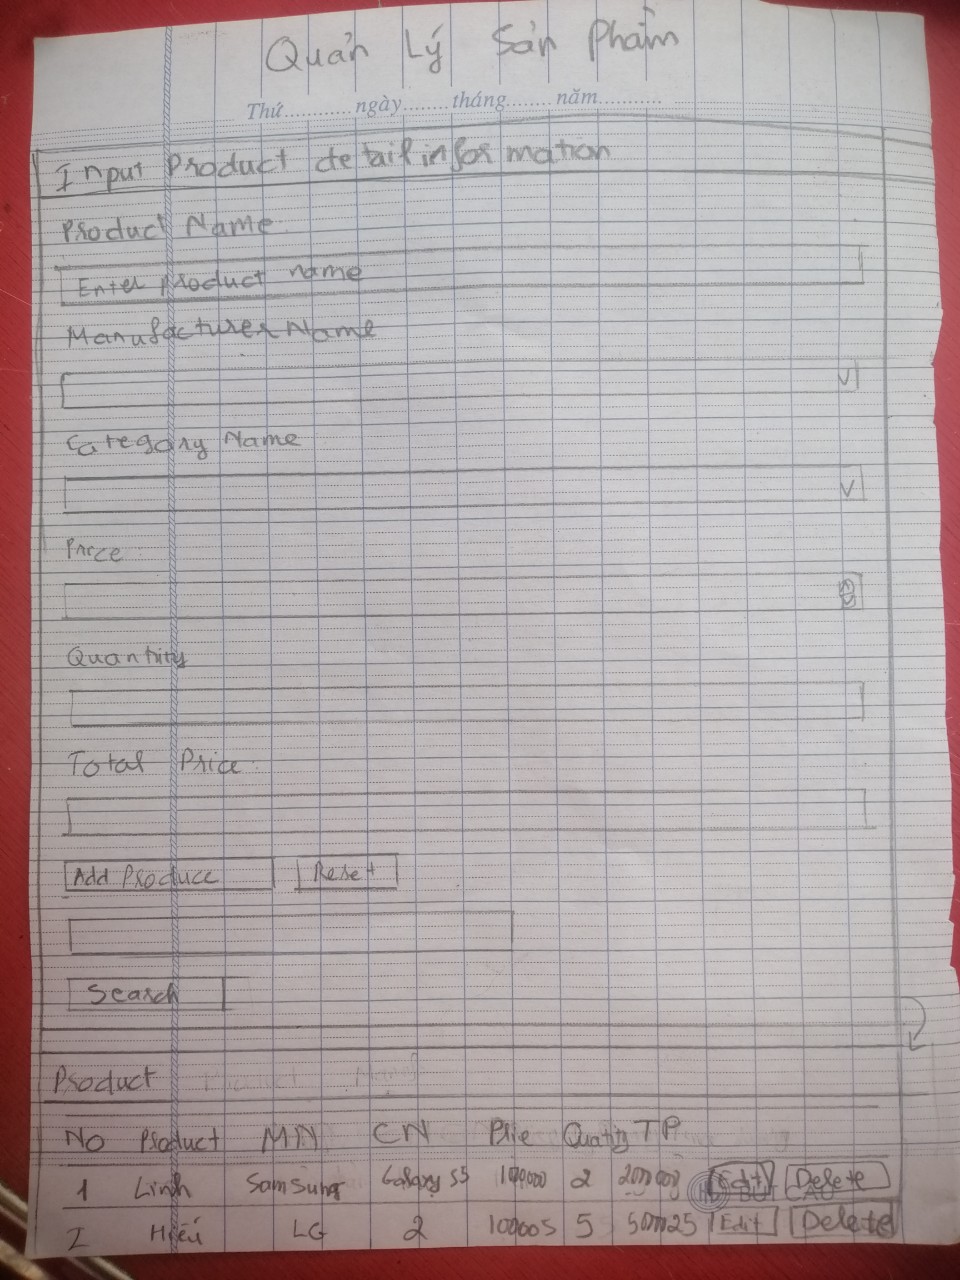 Quản Lý Sản Phẩm
Thứ............ngày........tháng........năm...........
Input Product detail information
Product Name
Enter product name
Manufacturer Name
Category Name
Price
Quantity
Total Price
Add Produce Reset
Search
Product
NO Product MN CN Prie Quatity TP
1 Linh Samsung Galaxy S5 100000 2 200000 Edit Delete
2 Hiếu LG 2 100005 5 500025 Edit Delete